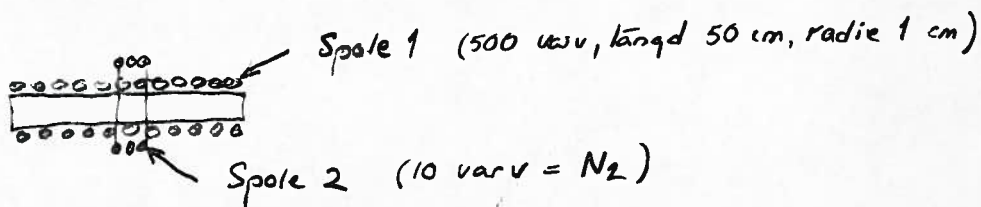 Spole 1 (500 varv, längd 50 cm, radie 1 cm)
Spole 2 (10 varv = N2)